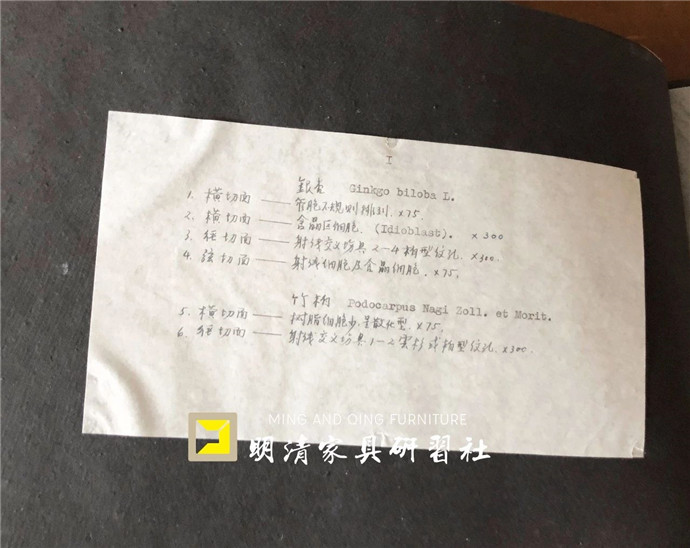 I
銀杏 Ginkgo biloba L.
1. 橫切面 —— 管胞不規則排列. ×75.
2. 橫切面 —— 含晶巨细胞. (Idioblast). ×300
3. 徑切面 —— 射线交叉场具 2—4 柏型纹孔. ×300.
4. 弦切面 —— 射线细胞及含晶细胞. ×75.
竹柏 Podocarpus Nagi Zoll. et Morit.
5. 橫切面 —— 树脂细胞少, 星散状型. ×75.
6. 徑切面 —— 射线交叉场具 1—2 雲杉或柏型纹孔. ×300.
MING AND QING FURNITURE
明清家具研習社